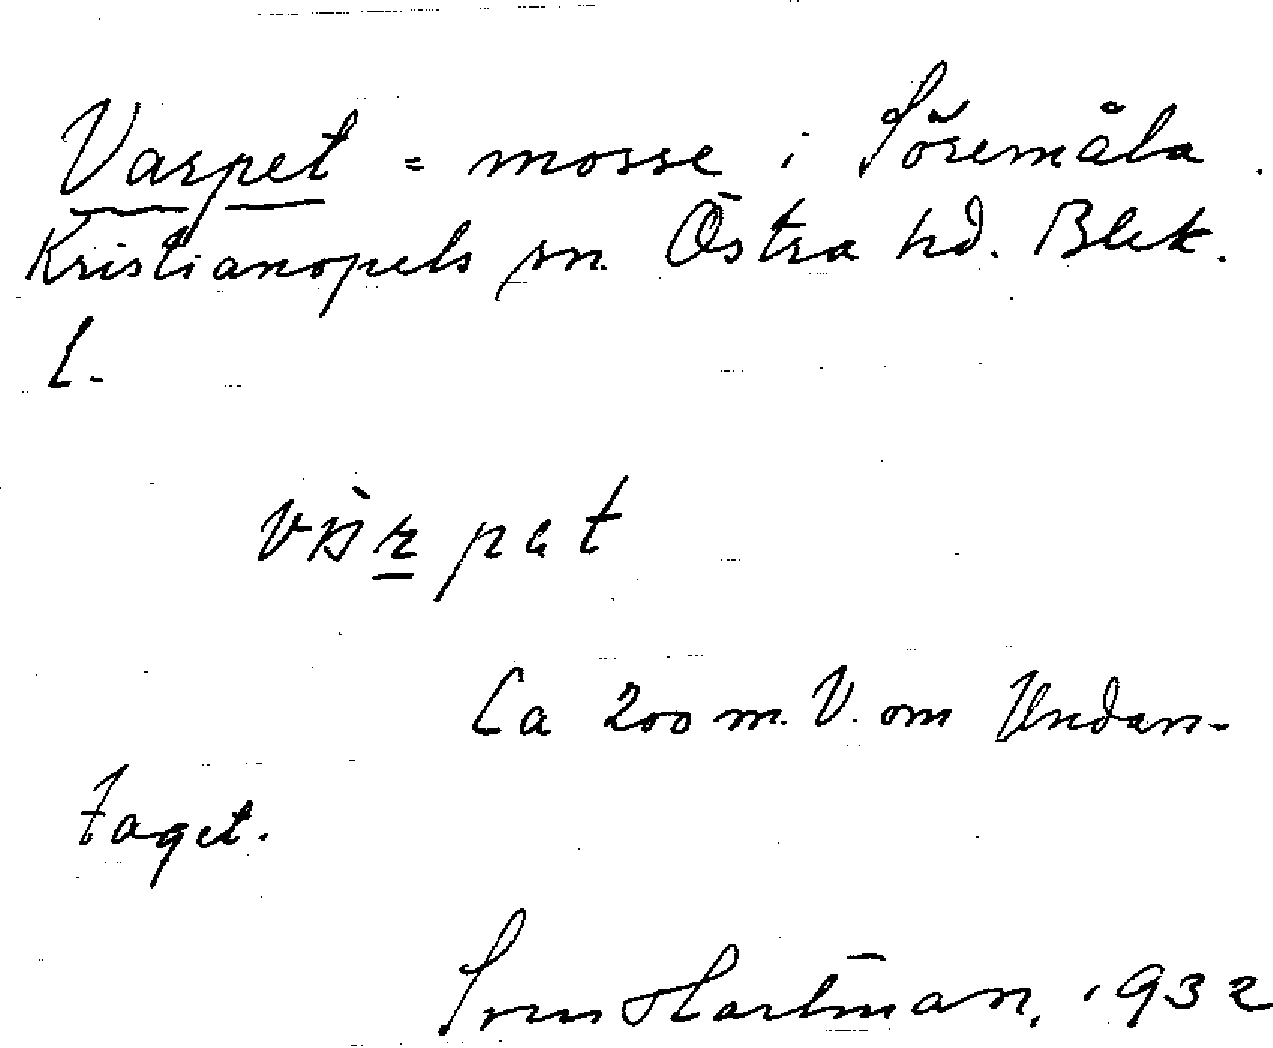 Varpet = mosse i Söremåla.
Kristianopels sn. Östra hd. Blek.
l.
Ca 200 m. V. om Undan-
taget.
Sven Hartman, 1932